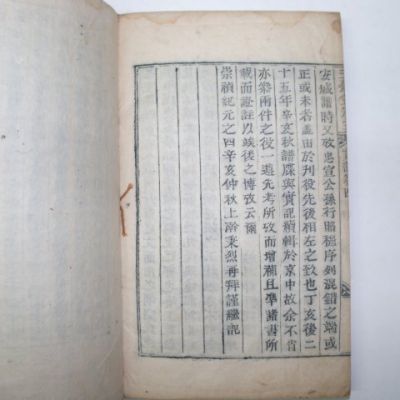 安城譜時又攷忠宣公孫行賜穆序列混錯之端或
正或未若盖由於刋役先後相左之致也丁亥後二
十五年辛亥秋譜牒與實記續輯於京中故余不肖
亦參兩件之役一遵先考所攷而增補且準諸書所
載而證註以竢後之博攷云爾
崇禎紀元之四辛亥仲秋上澣秉烈再拜謹繼記